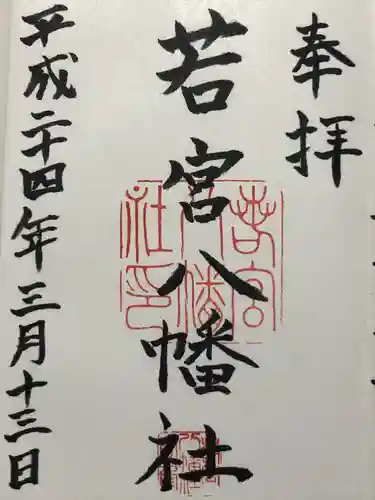 奉拝
若宮八幡社
平成二十四年三月十三日
若宮
八幡
社印